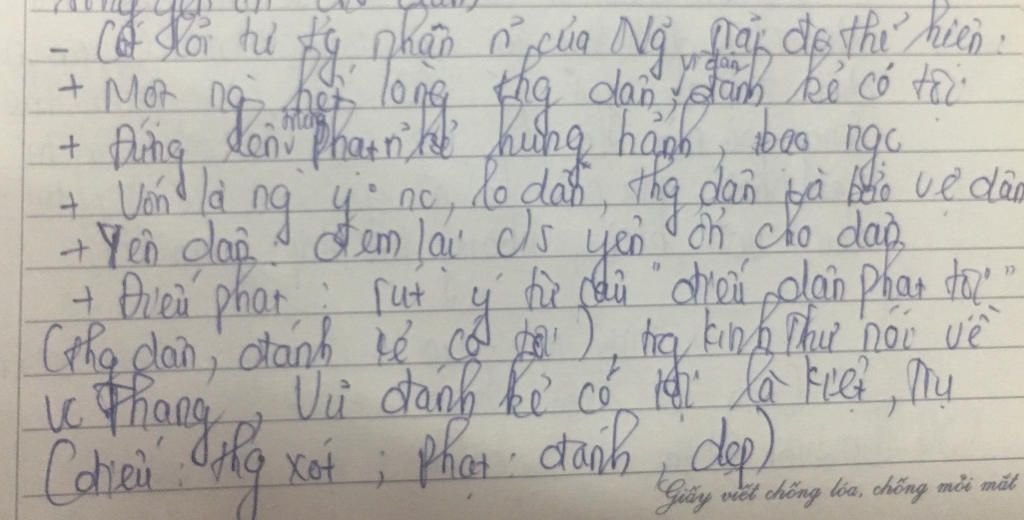 - Cốt lõi tư tg nhân n̉ của Ng̉ Trãi đc thể hiện:
+ Một ng hết lòng thg dân, vì dân đánh kẻ có tội
+ Đứng lên phạt kẻ hung hành, bạo ngc
+ Vốn là ng y nc, lo dân, thg dân và bảo vệ dân
+ Yên dân: đem lại c/s yên ổn cho dân
+ Điếu phạt: rút ý từ câu "điếu dân phạt tội"
(thg dân, đánh kẻ có tội), tg kinh Thư nói về
vc Thang, Vũ đánh kẻ có tội là Kiệt, Trụ
(điếu: thg xót; phạt: đánh, dẹp)
Giấy viết chống lóa, chống mỏi mắt